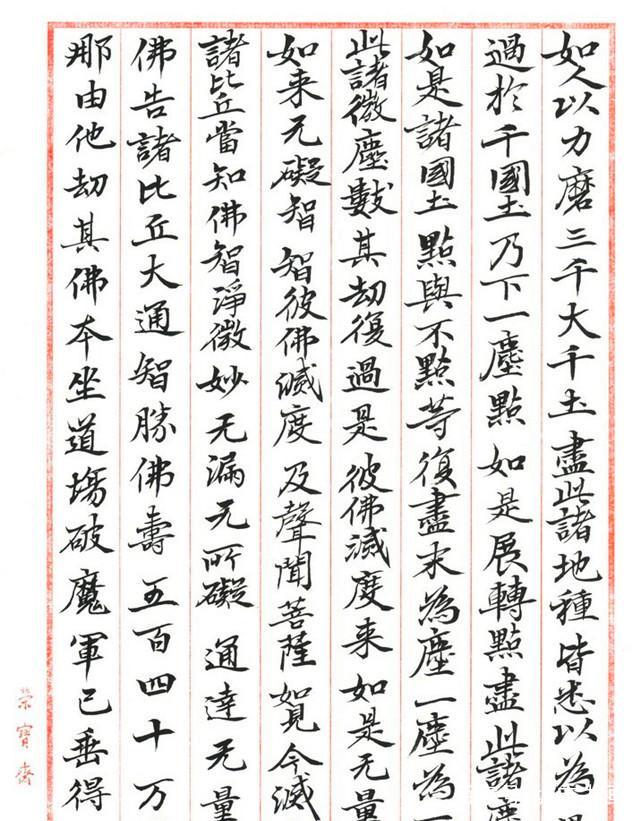 如人以力磨三千大千土盡此諸地種皆悉以為
過於千國土乃下一塵點如是展轉點盡此諸塵
如是諸國土點與不點等復盡末為塵一塵為一
此諸微塵數其劫復過是彼佛滅度来如是无量
如来无礙智智彼佛滅度及聲聞菩薩如見今滅
諸比丘當知佛智淨微妙无漏无所礙通達无量
佛告諸比丘大通智勝佛壽五百四十万
那由他劫其佛本坐道場破魔軍已垂得
荣寶齋